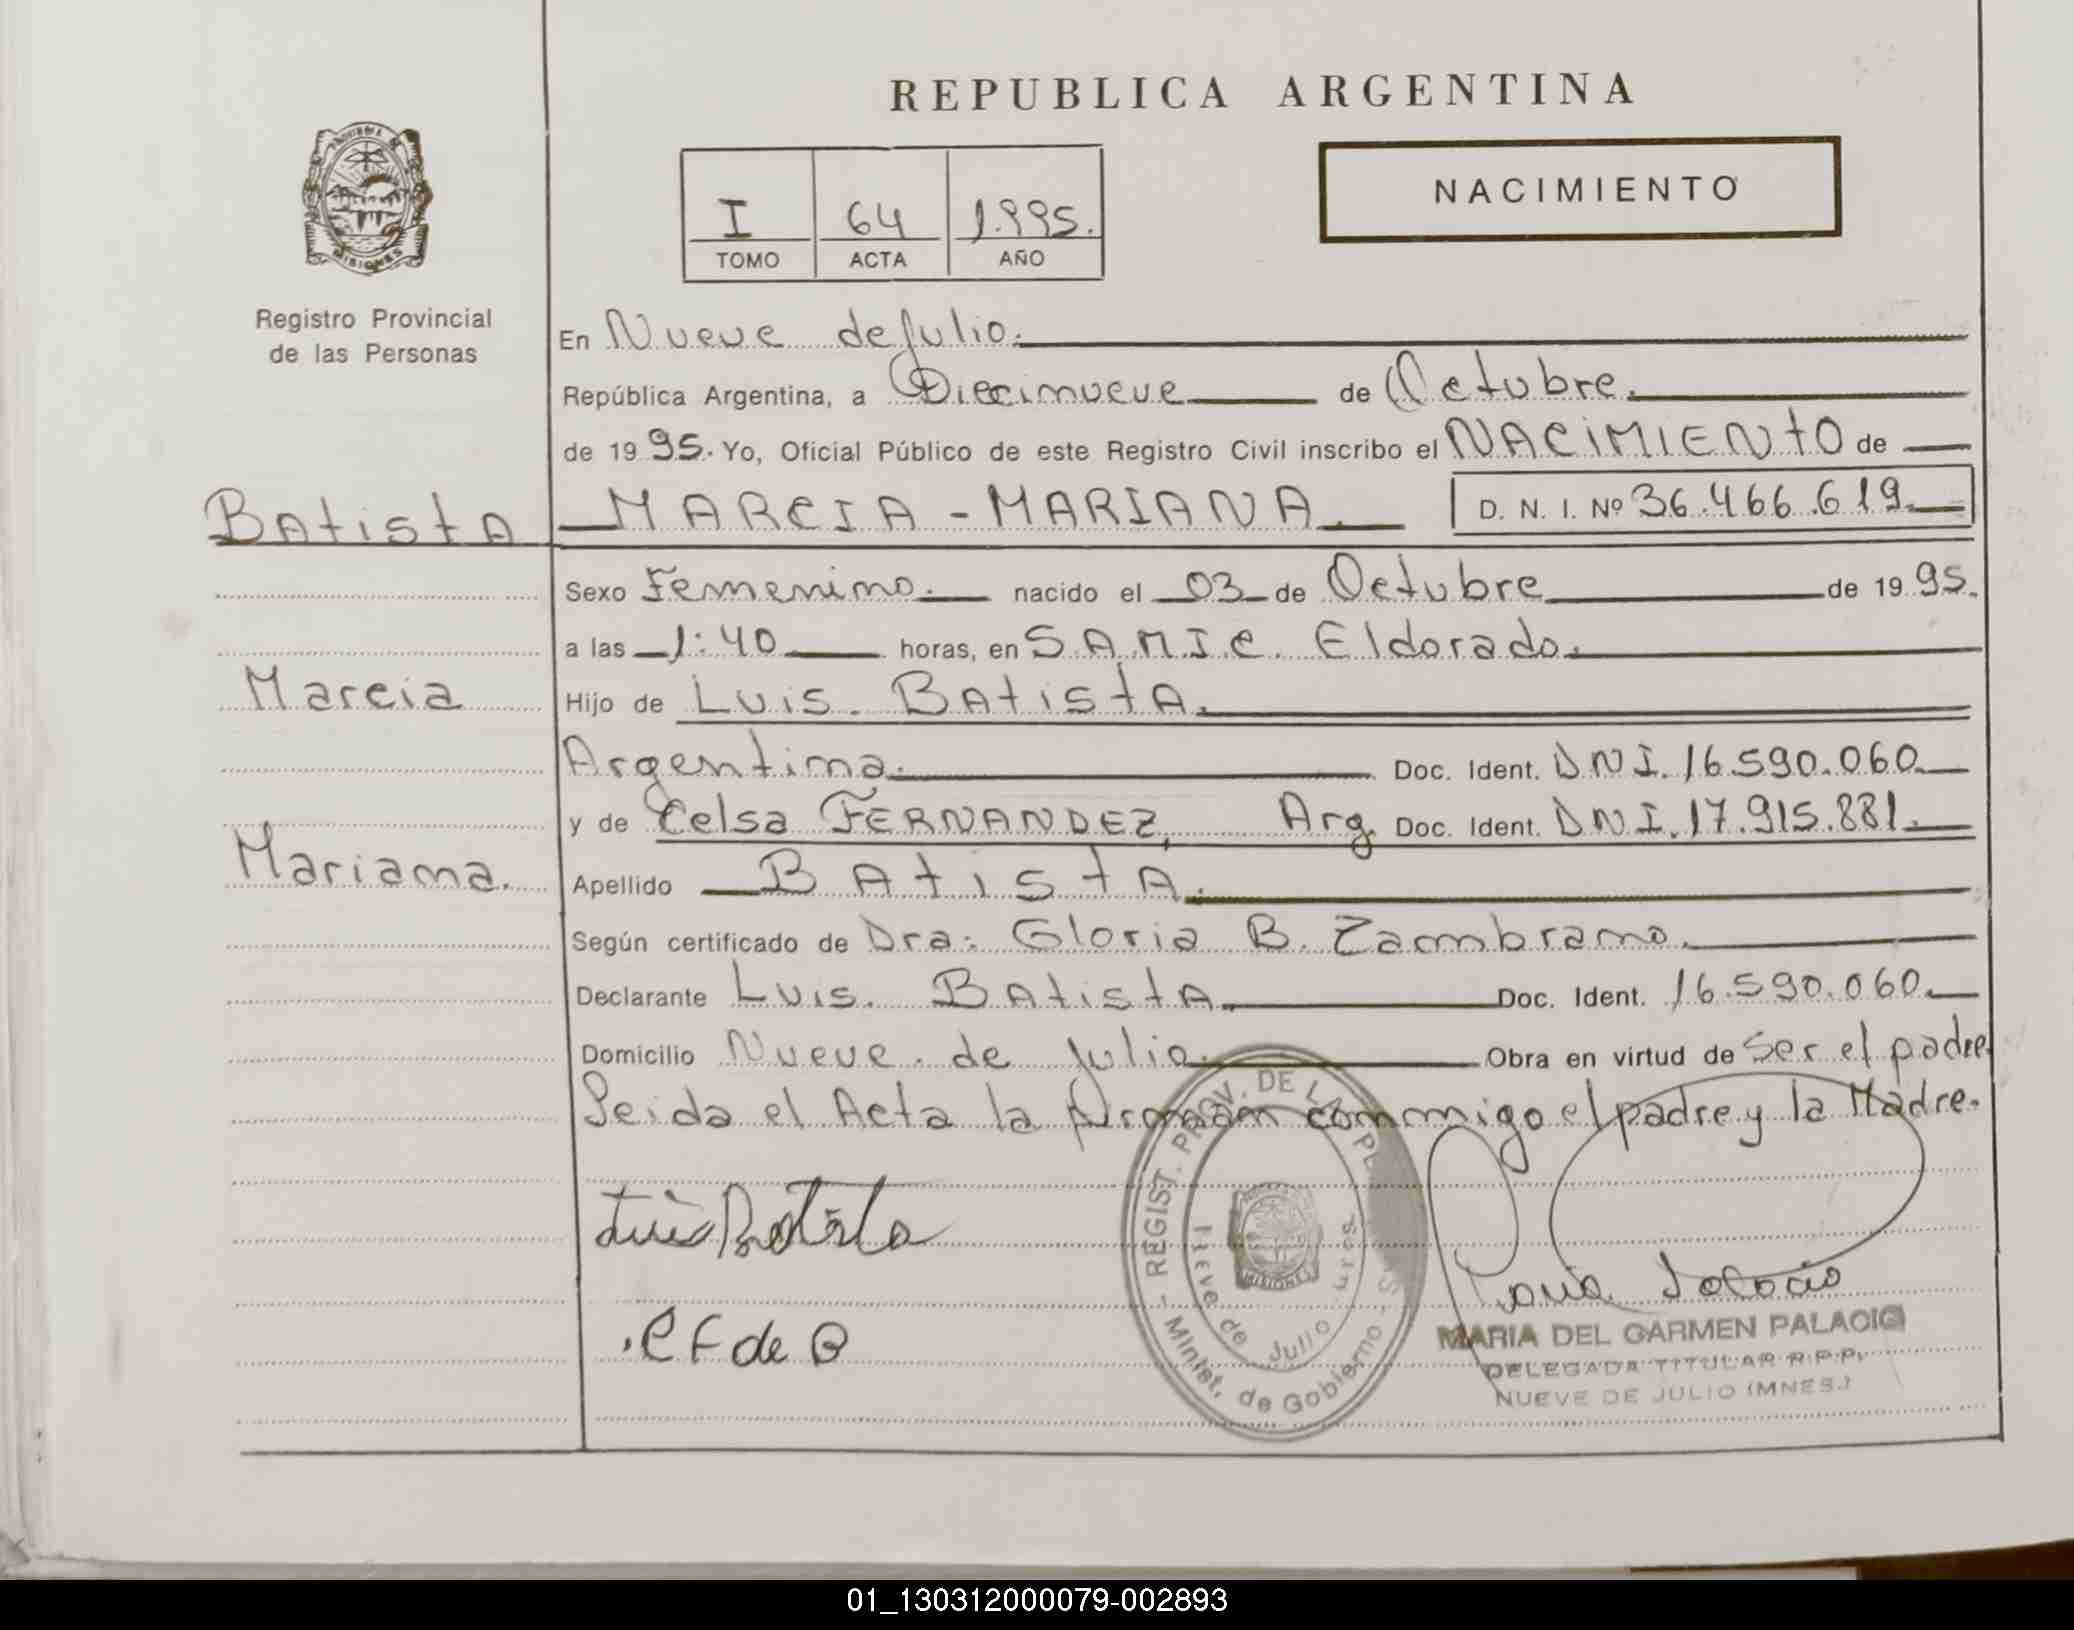 REPUBLICA ARGENTINA
NACIMIENTO
I 64 1.995.
TOMO ACTA AÑO
MISIONES
Registro Provincial
de las Personas
En Nueve de Julio.
República Argentina, a Diecinueve de Octubre.
de 1995. Yo, Oficial Público de este Registro Civil inscribo el NACIMIENTO de
Batista
MARCIA - MARIANA. D. N. I. Nº 36.466.619.
Sexo Femenino. nacido el 03 de Octubre de 1995.
a las 1:40 horas, en S.A.M.I.C. Eldorado.
Marcia
Hijo de Luis. Batista.
Argentina. Doc. Ident. DNI. 16.590.060.
y de Celsa FERNANDEZ, Arg. Doc. Ident. DNI. 17.915.881.
Mariana.
Apellido Batista.
Según certificado de Dra: Gloria B. Zambrano.
Declarante Luis. Batista. Doc. Ident. 16.590.060.
Domicilio Nueve. de Julio. Obra en virtud de Ser el padre.
Leida el Acta la firman conmigo el padre y la Madre.
Luis Batista
C F de B
REGIST. PROV. DE LA
Minist. de Gobierno
Nueve de Julio
MISIONES
MARIA DEL CARMEN PALACIO
DELEGADA TITULAR R.P.P.
NUEVE DE JULIO (MNES.)
01_130312000079-002893